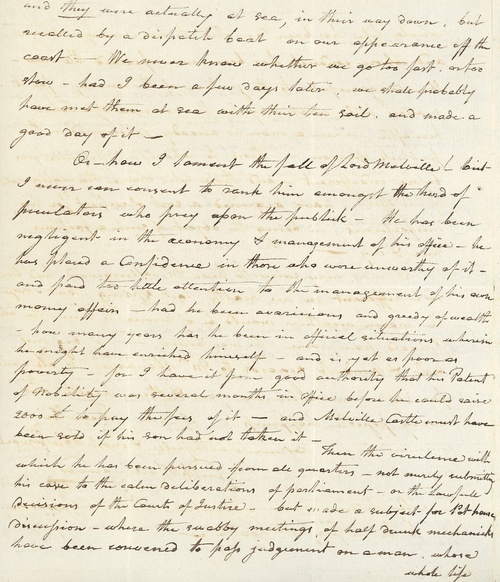 and they were actually at sea, in their way down, but
recalled by a dispatch boat on our appearance off the
coast – We never know whether we go too fast, or too
slow – had I been a few days later, we should probably
have met them at sea with their ten sail, and made a
good day of it –
Oh – how I lament the fall of Lord Melville! but
I never can consent to rank him amongst the herd of
peculators who prey upon the publick – He has been
negligent in the economy & management of his office – he
has placed a Confidence in those who were unworthy of it –
and paid too little attention to the management of his own
money affairs – had he been avaricious and greedy of wealth
– how many years has he been in official situations wherein
he might have enriched himself – and is yet as poor as
poverty – for I have it from good authority that his Patent
of Nobility was several months in office before he could raise
2000 £ to pay the fees of it – and Melville Castle must have
been sold if his son had not taken it –
Then the virulence with
which he has been pursued from all quarters – not merely submitting
his case to the calm deliberations of parliament – or the Lawfull
decisions of the Courts of Justice – but made a subject for Pot house
discussion – where the swabby meetings of half drunk mechanicks
have been convened to pass judgement on a man, whose
whole life